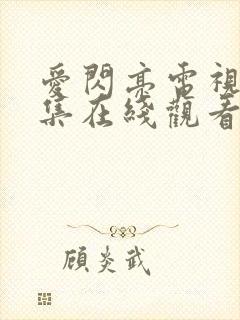 愛閃亮電視
集在綫觀看
顧炎武